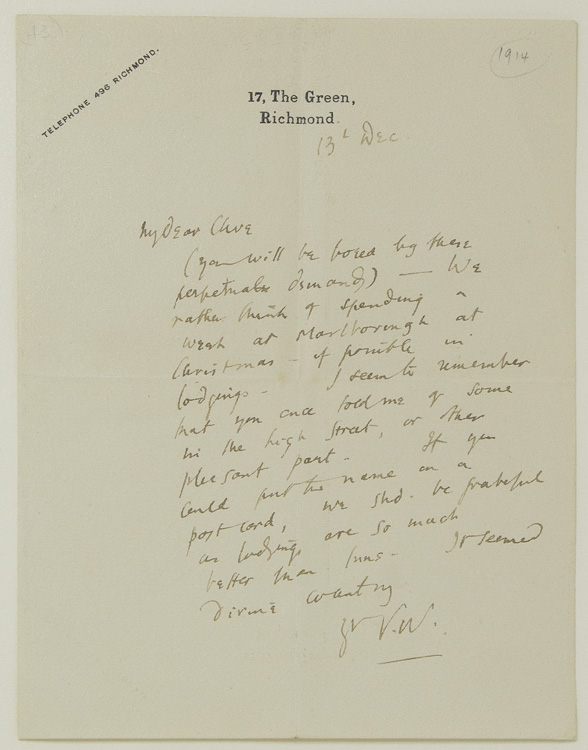 13.
1914
TELEPHONE 496 RICHMOND.
17, The Green,
Richmond.
13th Dec.
My dear Clive
(you will be bored by these
perpetual demands) — We
rather think of spending a
week at Marlborough at
Christmas – if possible in
lodgings – I seem to remember
that you once told me of some
in the high street, or other
pleasant part – If you
could put the name on a
post card, we shd. be grateful
as lodgings are so much
better than Inns – It seemed
divine country
yr V.W.